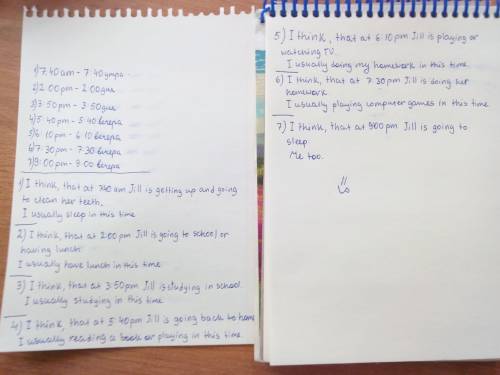 1) 7:40 am - 7:40 утра
2) 2:00 pm - 2:00 дня
3) 3:50 pm - 3:50 дня
4) 5:40 pm - 5:40 вечера
5) 6:10 pm - 6:10 вечера
6) 7:30 pm - 7:30 вечера
7) 9:00 pm - 9:00 вечера
1) I think, that at 7:40 am Jill is getting up and going
to clean her teeth.
I usually sleep in this time.
2) I think, that at 2:00 pm Jill is going to school or
having lunch.
I usually have lunch in this time.
3) I think, that at 3:50 pm Jill is studying in school.
I usually studying in this time.
4) I think, that at 5:40 pm Jill is going back to home
I usually reading a book or playing in this time.
5) I think, that at 6:10 pm Jill is playing or
watching TV.
I usually doing my homework in this time.
6) I think, that at 7:30 pm Jill is doing her
homework.
I usually playing computer games in this time
7) I think, that at 900 pm Jill is going to
sleep.
Me too.